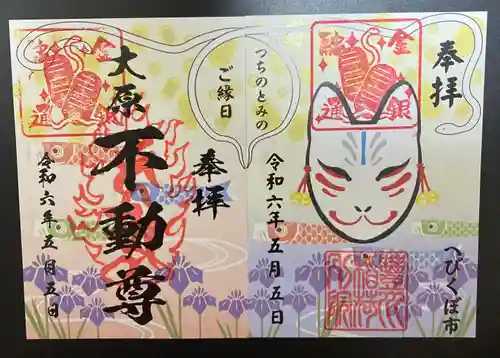 奉拝
金銀融通
へびくぼ市
令和六年五月五日
つちのとみの
ご縁日
奉拝
大原不動尊
金銀融通
令和六年五月五日